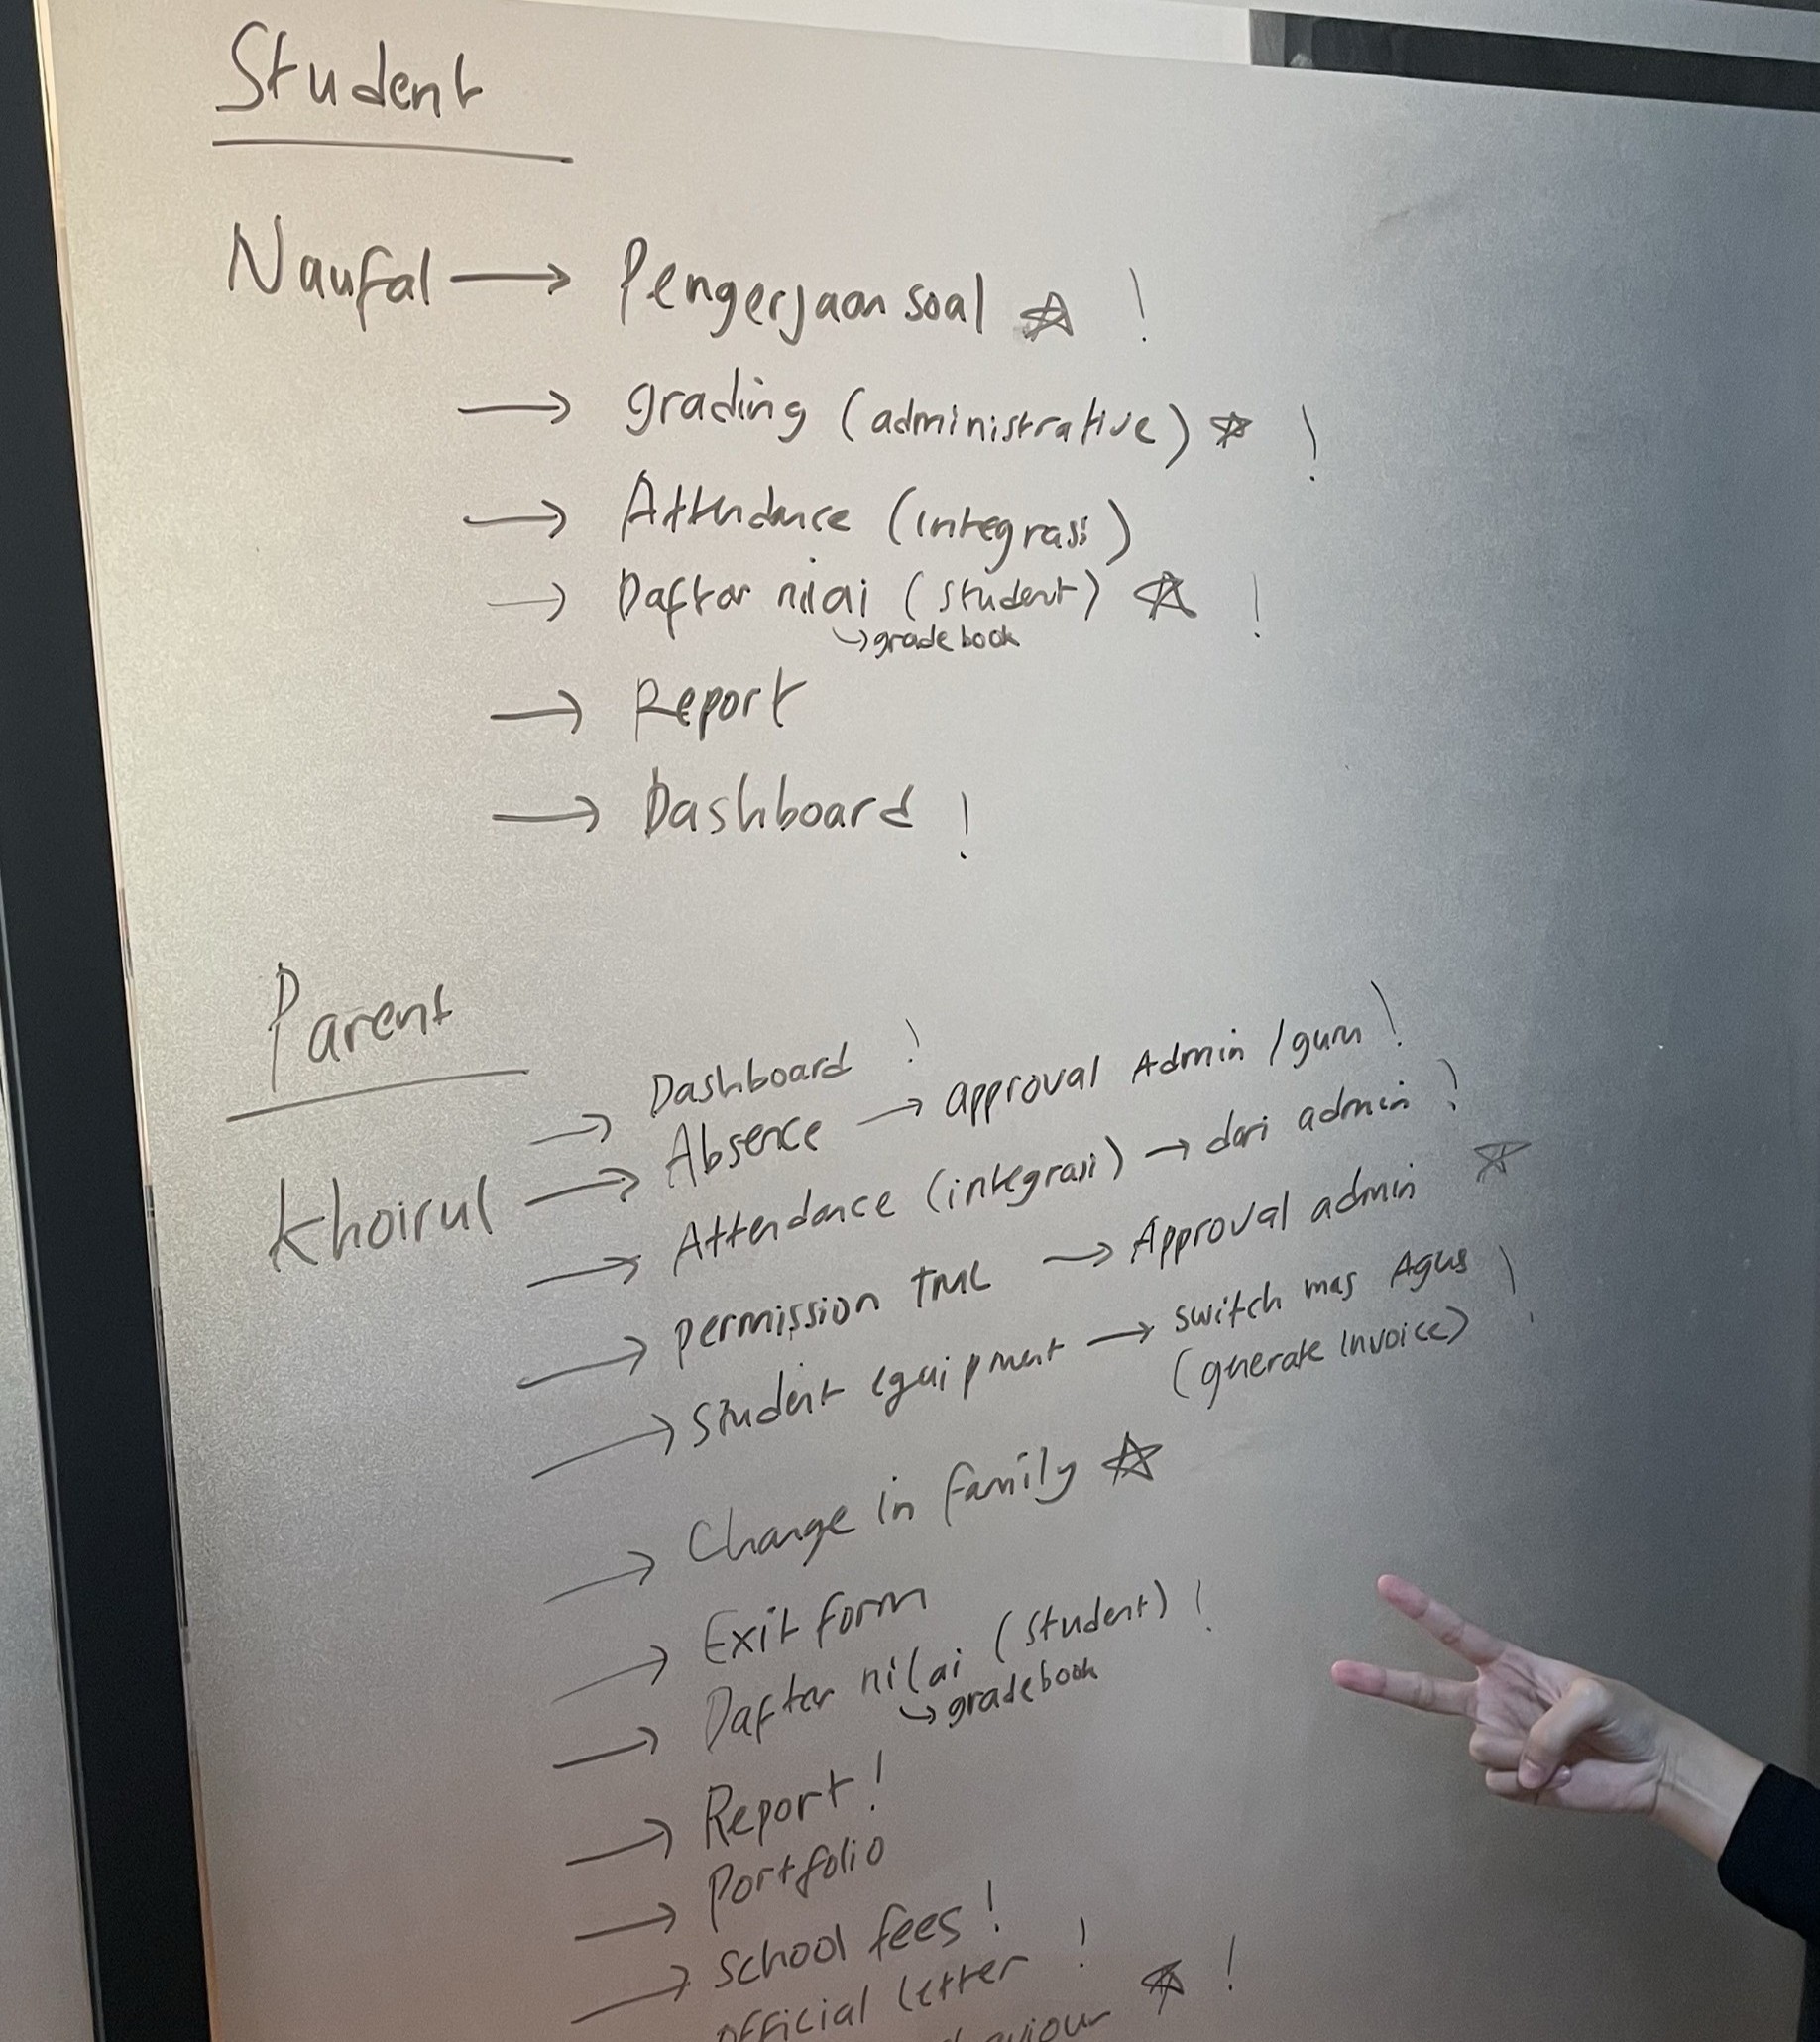 Student
Naufal → Pengerjaan soal ☆ !
→ grading (administrative) ☆ !
→ Attendance (integrasi)
→ Daftar nilai (student) ☆ !
↳ gradebook
→ Report
→ Dashboard !
Parent
→ Dashboard !
Khoirul → Absence → approval Admin / guru !
→ Attendance (integrasi) → dari admin !
→ permission TML → Approval admin ☆
→ Student equipment → switch mas Agus !
(generate invoice)
→ Change in family ☆
→ Exit form
→ Daftar nilai (student) !
↳ gradebook
→ Report !
→ Portfolio
→ school fees !
official letter !
☆ !